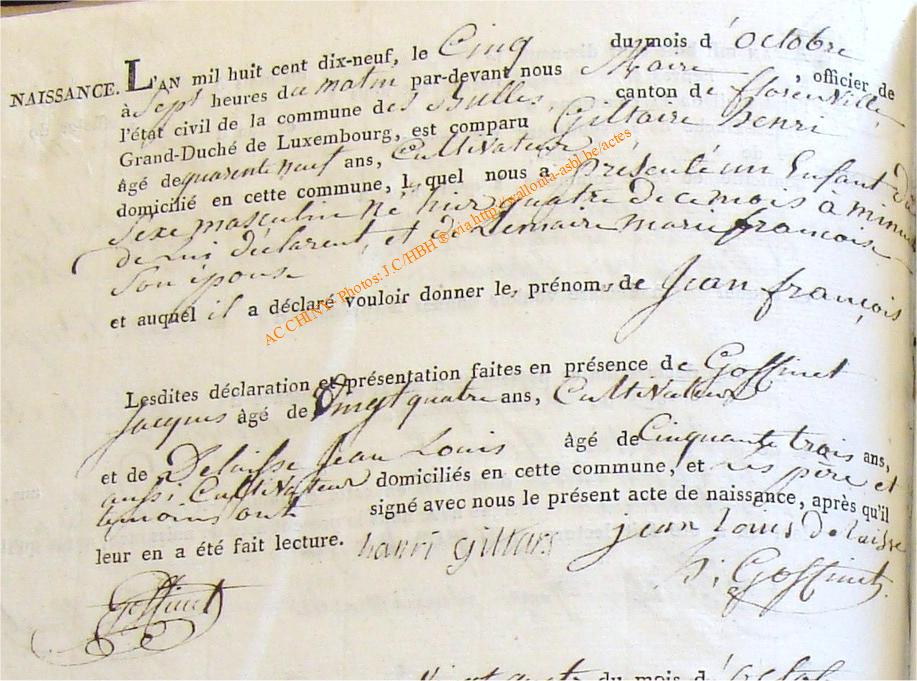 NAISSANCE. L'AN mil huit cent dix-neuf, le Cinq du mois d'octobre
à Sept heures du matin par-devant nous Maire, officier de
l'état civil de la commune des Bulles canton de florenville,
Grand-Duché de Luxembourg, est comparu Giltaire henri
âgé de quarente neuf ans, Cultivateur
domicilié en cette commune, lequel nous a présenté un Enfant du
Sexe masculin né hier quatre de ce mois a minuit
de lui déclarent, et de Lemaire marie françoise
Son épouse
et auquel il a déclaré vouloir donner les prénoms de Jean françois
Lesdites déclaration et présentation faites en présence de Goffinet
Jacques âgé de Vingt quatre ans, Cultivateur
et de Delaisse Jean Louis âgé de Cinquante trois ans,
aussi Cultivateur domiciliés en cette commune, et les père et
temoins ont signé avec nous le présent acte de naissance, après qu'il
leur en a été fait lecture. hanri Gillars jean Louis Delaisse
j; Goffinet
Goffinet
AC CHINY - Photos: J.C/HBH ® via http://wallonia-asbl.be/actes
du mois d'octob